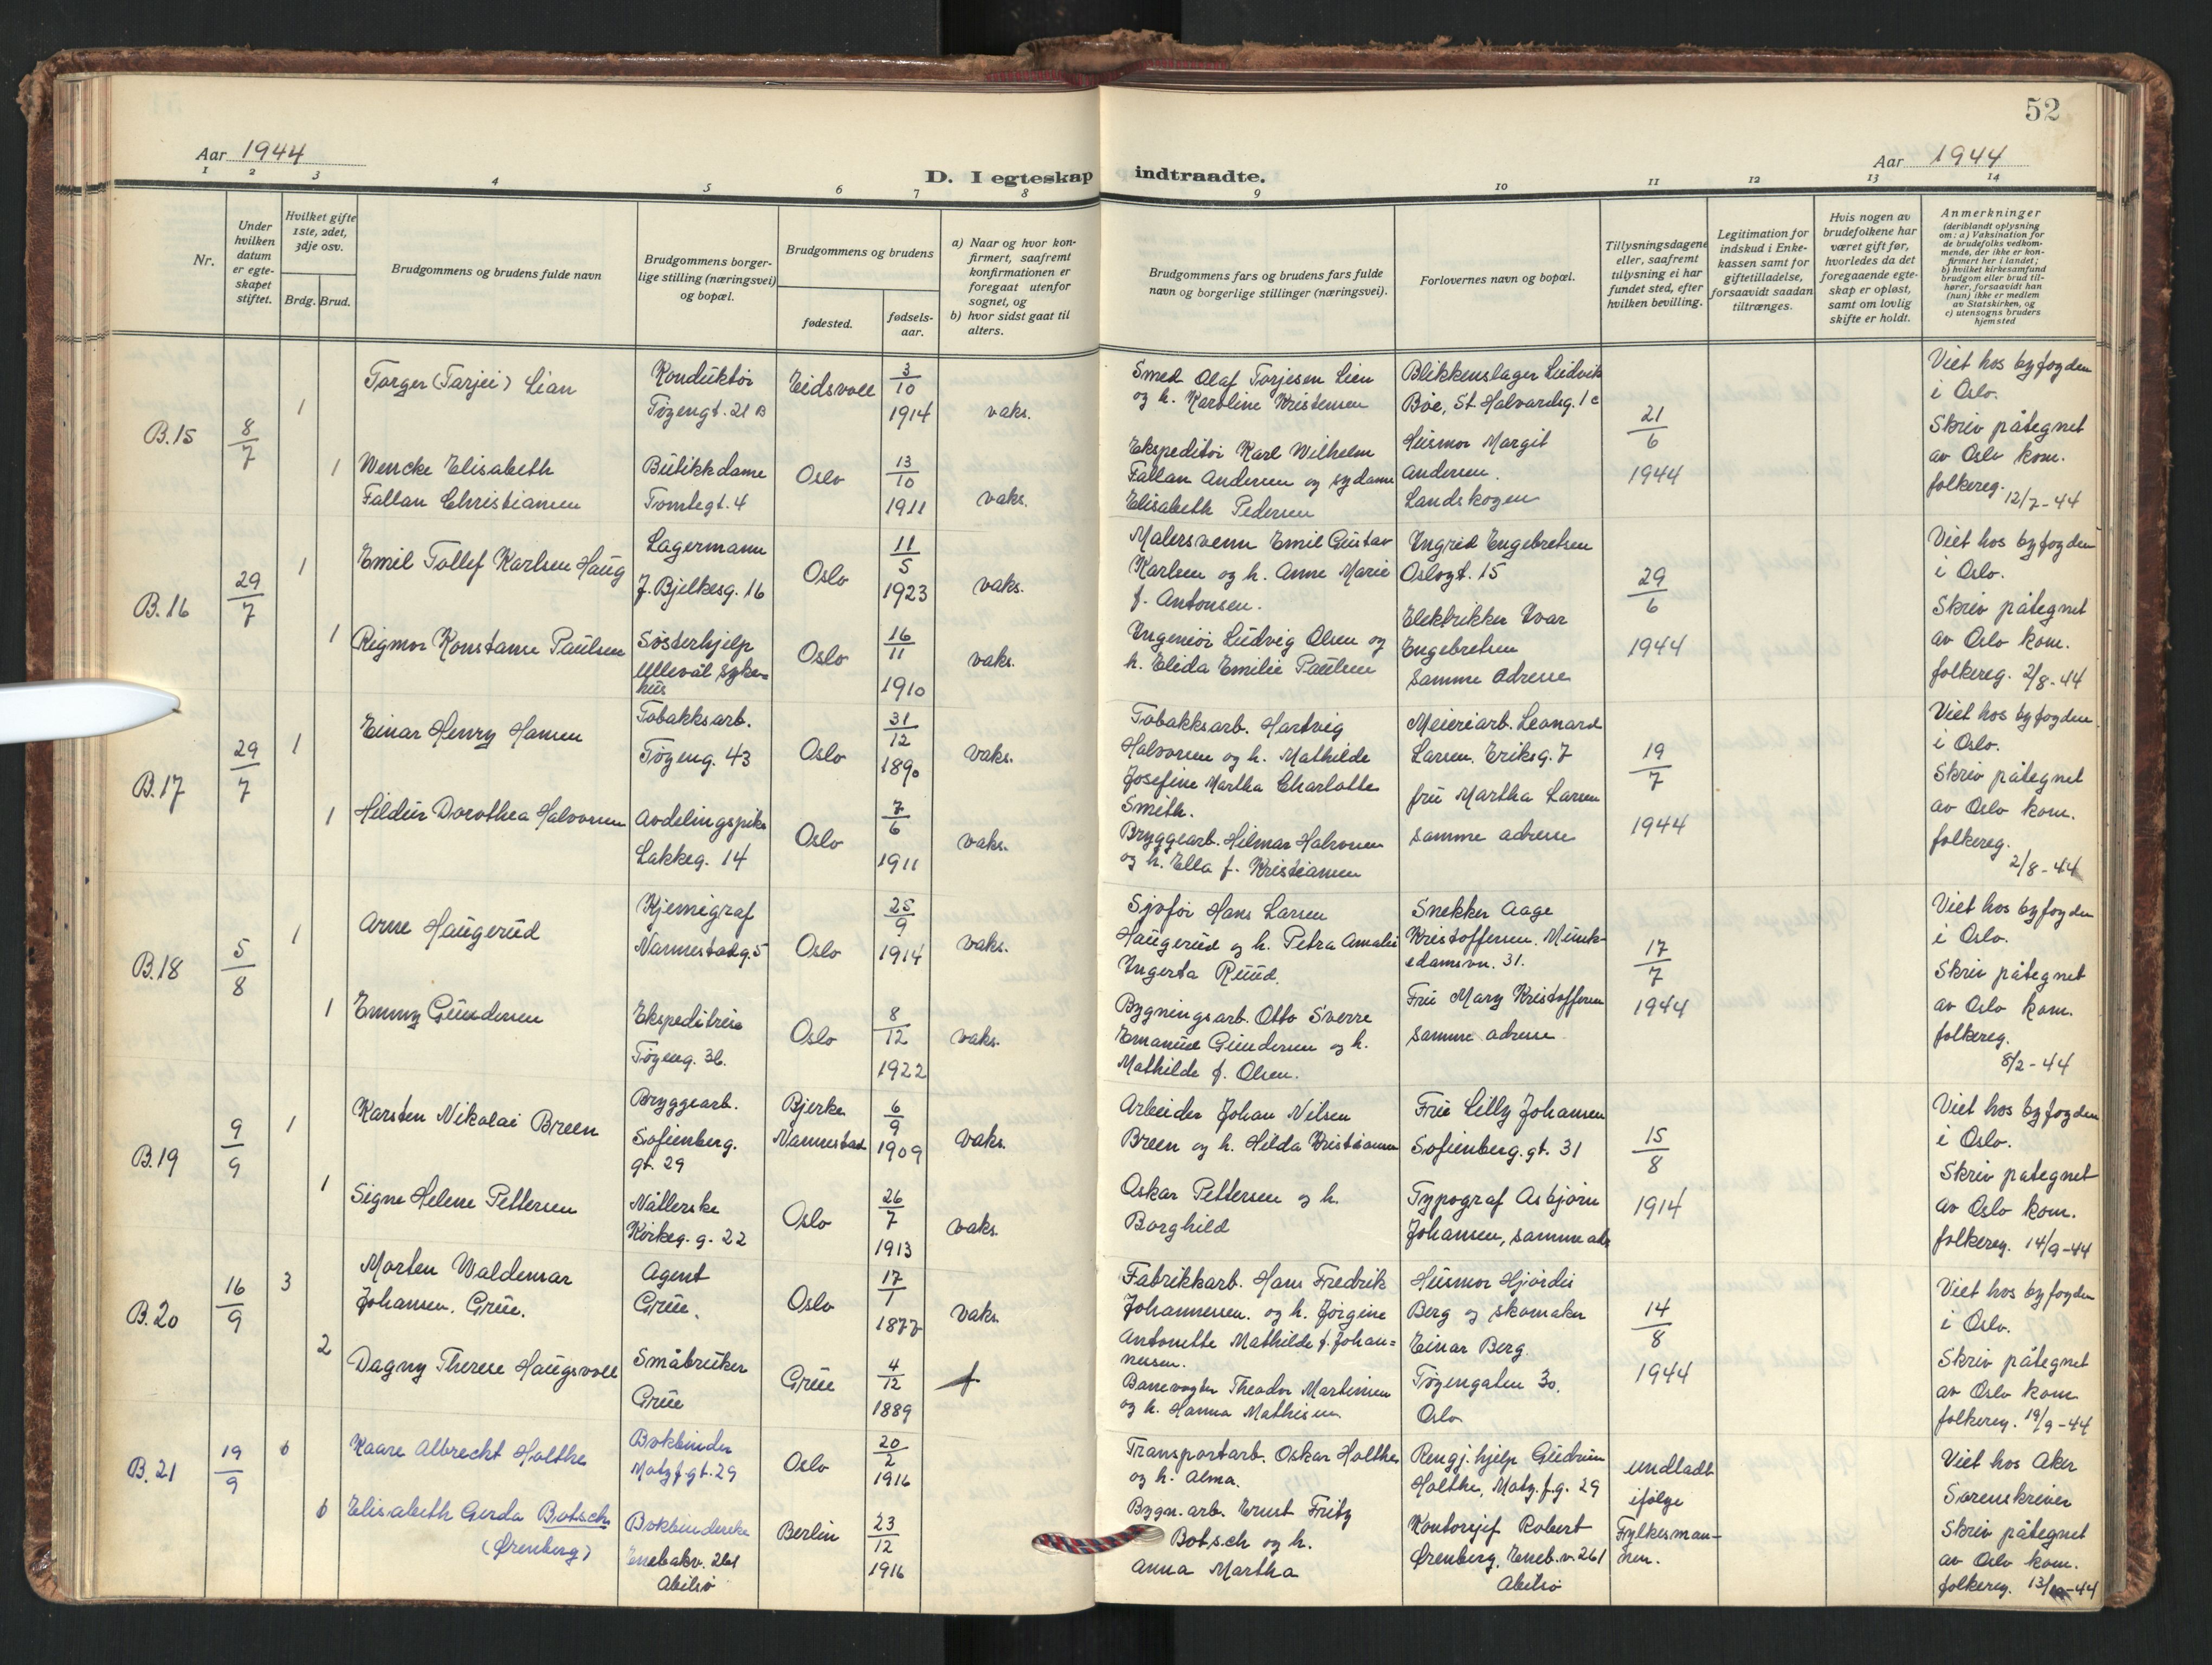 52
Aar 1944
Aar 1944
D. I egteskap indtraadte.
1 2 3 4 5 6 7 8 9 10 11 12 13 14
Nr.
Under hvilken datum er egteskapet stiftet.
Hvilket gifte 1ste, 2det, 3dje osv.
Brdg. Brud.
Brudgommens og brudens fulde navn
Brudgommens borgerlige stilling (næringsvei) og bopæl.
Brudgommens og brudens
fødested.
fødselsaar.
a) Naar og hvor konfirmert, saafremt konfirmationen er foregaat utenfor sognet, og
b) hvor sidst gaat til alters.
Brudgommens fars og brudens fars fulde navn og borgerlige stillinger (næringsvei).
Forlovernes navn og bopæl.
Tillysningsdagene eller, saafremt tillysning ei har fundet sted, efter hvilken bevilling.
Legitimation for indskud i Enkekassen samt for giftetilladelse, forsaavidt saadan tiltrænges.
Hvis nogen av brudefolkene har været gift før, hvorledes da det foregaaende egteskap er opløst, samt om lovlig skifte er holdt.
Anmerkninger
(deriblandt oplysning om: a) Vaksination for de brudefolks vedkommende, der ikke er konfirmert her i landet; b) hvilket kirkesamfund brudgom eller brud tilhører, forsaavidt han (hun) ikke er medlem av Statskirken, og c) utensogns bruders hjemsted
B.15
8/7
1
Torger (Tarjei) Lian
Konduktør
Tøyengt. 21 B
Eidsvoll
3/10 1914
vaks.
Smed Olaf Torjesen Lien
og h. Karoline Kristensen
Blikkenslager Ludvik
Bøe, St. Halvardsg. 1c
21/6
1944
Viet hos byfogden
i Oslo.
Skriv påtegnet
av Oslo kom.
folkereg. 12/7-44
1
Wencke Elisabeth
Fallan Christiansen
Butikkdame
Tomtegt. 4
Oslo
13/10 1911
vaks.
Ekspeditør Karl Wilhelm
Fallan Andersen og sydame
Elisabeth Pedersen
Husmor Margit
Andersen
Landskogen
B.16
29/7
1
Emil Tollef Karlsen Haug
Lagermann
J. Bjelkesg. 16
Oslo
11/5 1923
vaks.
Malersvenn Emil Gustav
Karlsen og h. Anne Marie
f. Antonsen.
Ingrid Engebretsen
Oslogt. 15
29/6
1944
Viet hos byfogden
i Oslo.
Skriv påtegnet
av Oslo kom.
folkereg. 2/8-44
1
Rigmor Konstanse Paulsen
Søsterhjelp
Ullevål syke=
hus
Oslo
16/11 1910
vaks.
Ingeniør Ludvig Olsen og
h. Elida Emilie Paulsen
Elektrikker Ivar
Engebretsen
samme adresse
B.17
29/7
1
Einar Henry Hansen
Tobakksarb.
Tøyeng. 43
Oslo
31/12 1890
vaks.
Tobakksarb. Hartvig
Halvorsen og h. Mathilde
Josefine Martha Charlotte
Smith.
Meieriarb. Leonard
Larsen. Eriksg. 7
19/7
1944
Viet hos byfogden
i Oslo.
Skriv påtegnet
av Oslo kom.
folkereg.
2/8-44
1
Hildur Dorothea Halvorsen
Avdelingspike
Lakkeg. 14
Oslo
7/6 1911
vaks.
Bryggearb. Hilmar Halvorsen
og h. Ella f. Kristiansen
fru Martha Larsen
samme adresse
B.18
5/8
1
Arne Haugerud
Kjemigraf
Nannestadg. 5
Oslo
25/9 1914
vaks.
Sjøfør Hans Larsen
Haugerud og h. Petra Amalie
Ingerta Ruud.
Snekker Aage
Kristoffersen. Munk-
edamsvn. 31.
17/7
1944
Viet hos byfogden
i Oslo.
Skriv påtegnet
av Oslo kom.
folkereg.
8/2-44
1
Emmy Gundersen
Ekspeditrise
Tøyeng. 36.
Oslo
8/12 1922
vaks.
Bygningsarb. Otto Sverre
Emanuel Gundersen og h.
Mathilde f. Olsen.
Fru Mary Kristoffersen
samme adresse
B.19
9/9
1
Karsten Nikolai Breen
Bryggearb.
Sofienberg.
gt. 29
Bjerke
Nannestad
6/9 1909
vaks.
Arbeider Johan Nilsen
Breen og h. Hilda Kristiansen
Frue Lilly Johansen
Sofienberg. gt. 31
15/8
1914
Viet hos byfogden
i Oslo.
Skriv pategnet
av Oslo kom.
folkereg. 14/9-44
1
Signe Helene Pettersen
Nåtlerske
Kirkeg. g. 22
Oslo
26/7 1913
vaks.
Oskar Pettersen og h.
Borghild
Typograf Asbjørn
Johansen, samme adr.
B.20
16/9
3
Morten Waldemar
Johansen. Grue.
Agent
Grue.
Oslo
17/1 1877
vaks.
Fabrikkarb. Hans Fredrik
Johannessen. og h. Jørgine
Antonette Mathilde f. Johan=
nesen.
Husmor Hjørdis
Berg og skomaker
Einar Berg.
Tøyengaten 30.
Oslo
14/8
1944
Viet hos byfogden
i Oslo.
Skriv påtegnet
av Oslo kom
folkereg. 19/9-44
2
Dagny Therese Haugsvoll
Småbruker
Grue
Grue
4/12 1889
f
Banevogter Theodor Martinsen
og h. Hanna Mathisen
B.21
19/9
6
Kaare Albrecht Holthe
Bokbinder
Motzf.gt. 29
Oslo
20/2 1916
Transportarb. Oskar Holthe
og h. Alma.
Rengj.hjelp Gudrun
Holthe, Motz.f.g. 29
undladt
ifølge
Fylkesman-
nen.
Viet hos Aker
Sorenskriver
Skriv påtegnet
av Oslo kom.
folkereg. 13/10-44
6
Elisabeth Gerda Botsch
(Ørenberg)
Bokbinderske
Enebakv. 261
Abilsø
Berlin
23/12 1916
Bygn.arb. Ernst Fritz
Botsch og h.
Anna Martha
Kontorsjef Robert
Ørenberg, Eneb.v. 261
Abilsø